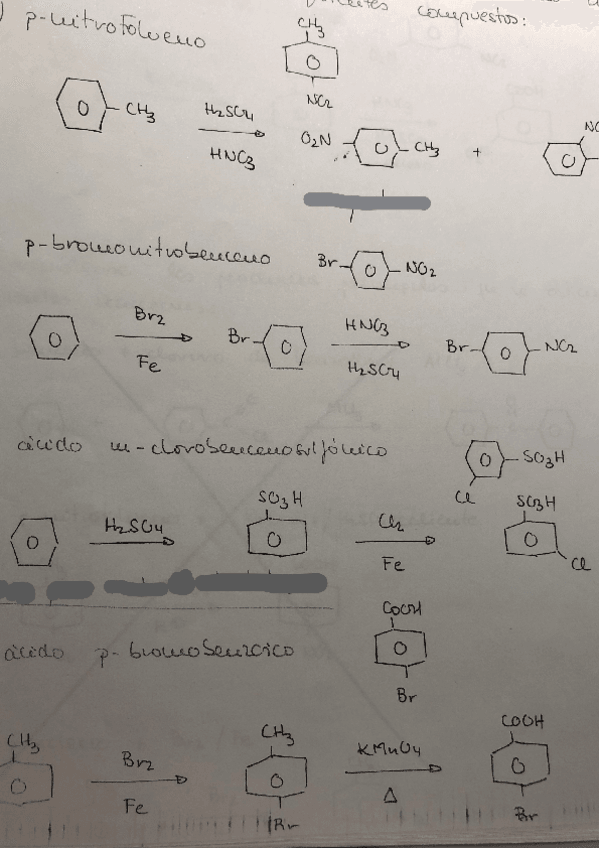 compuestos:
p-nitrotolueno
CH3
NO2
CH3
H2SO4
HNO3
O2N
CH3
+
p-bromonitrobenceno
Br
NO2
Br2
Fe
Br
HNO3
H2SO4
Br
NO2
ácido m-clorobencenosulfónico
SO3H
Cl
H2SO4
SO3H
Cl2
Fe
SO3H
Cl
ácido p-bromobenzoico
COOH
Br
CH3
Br2
Fe
CH3
Br
KMnO4
Δ
COOH
Br